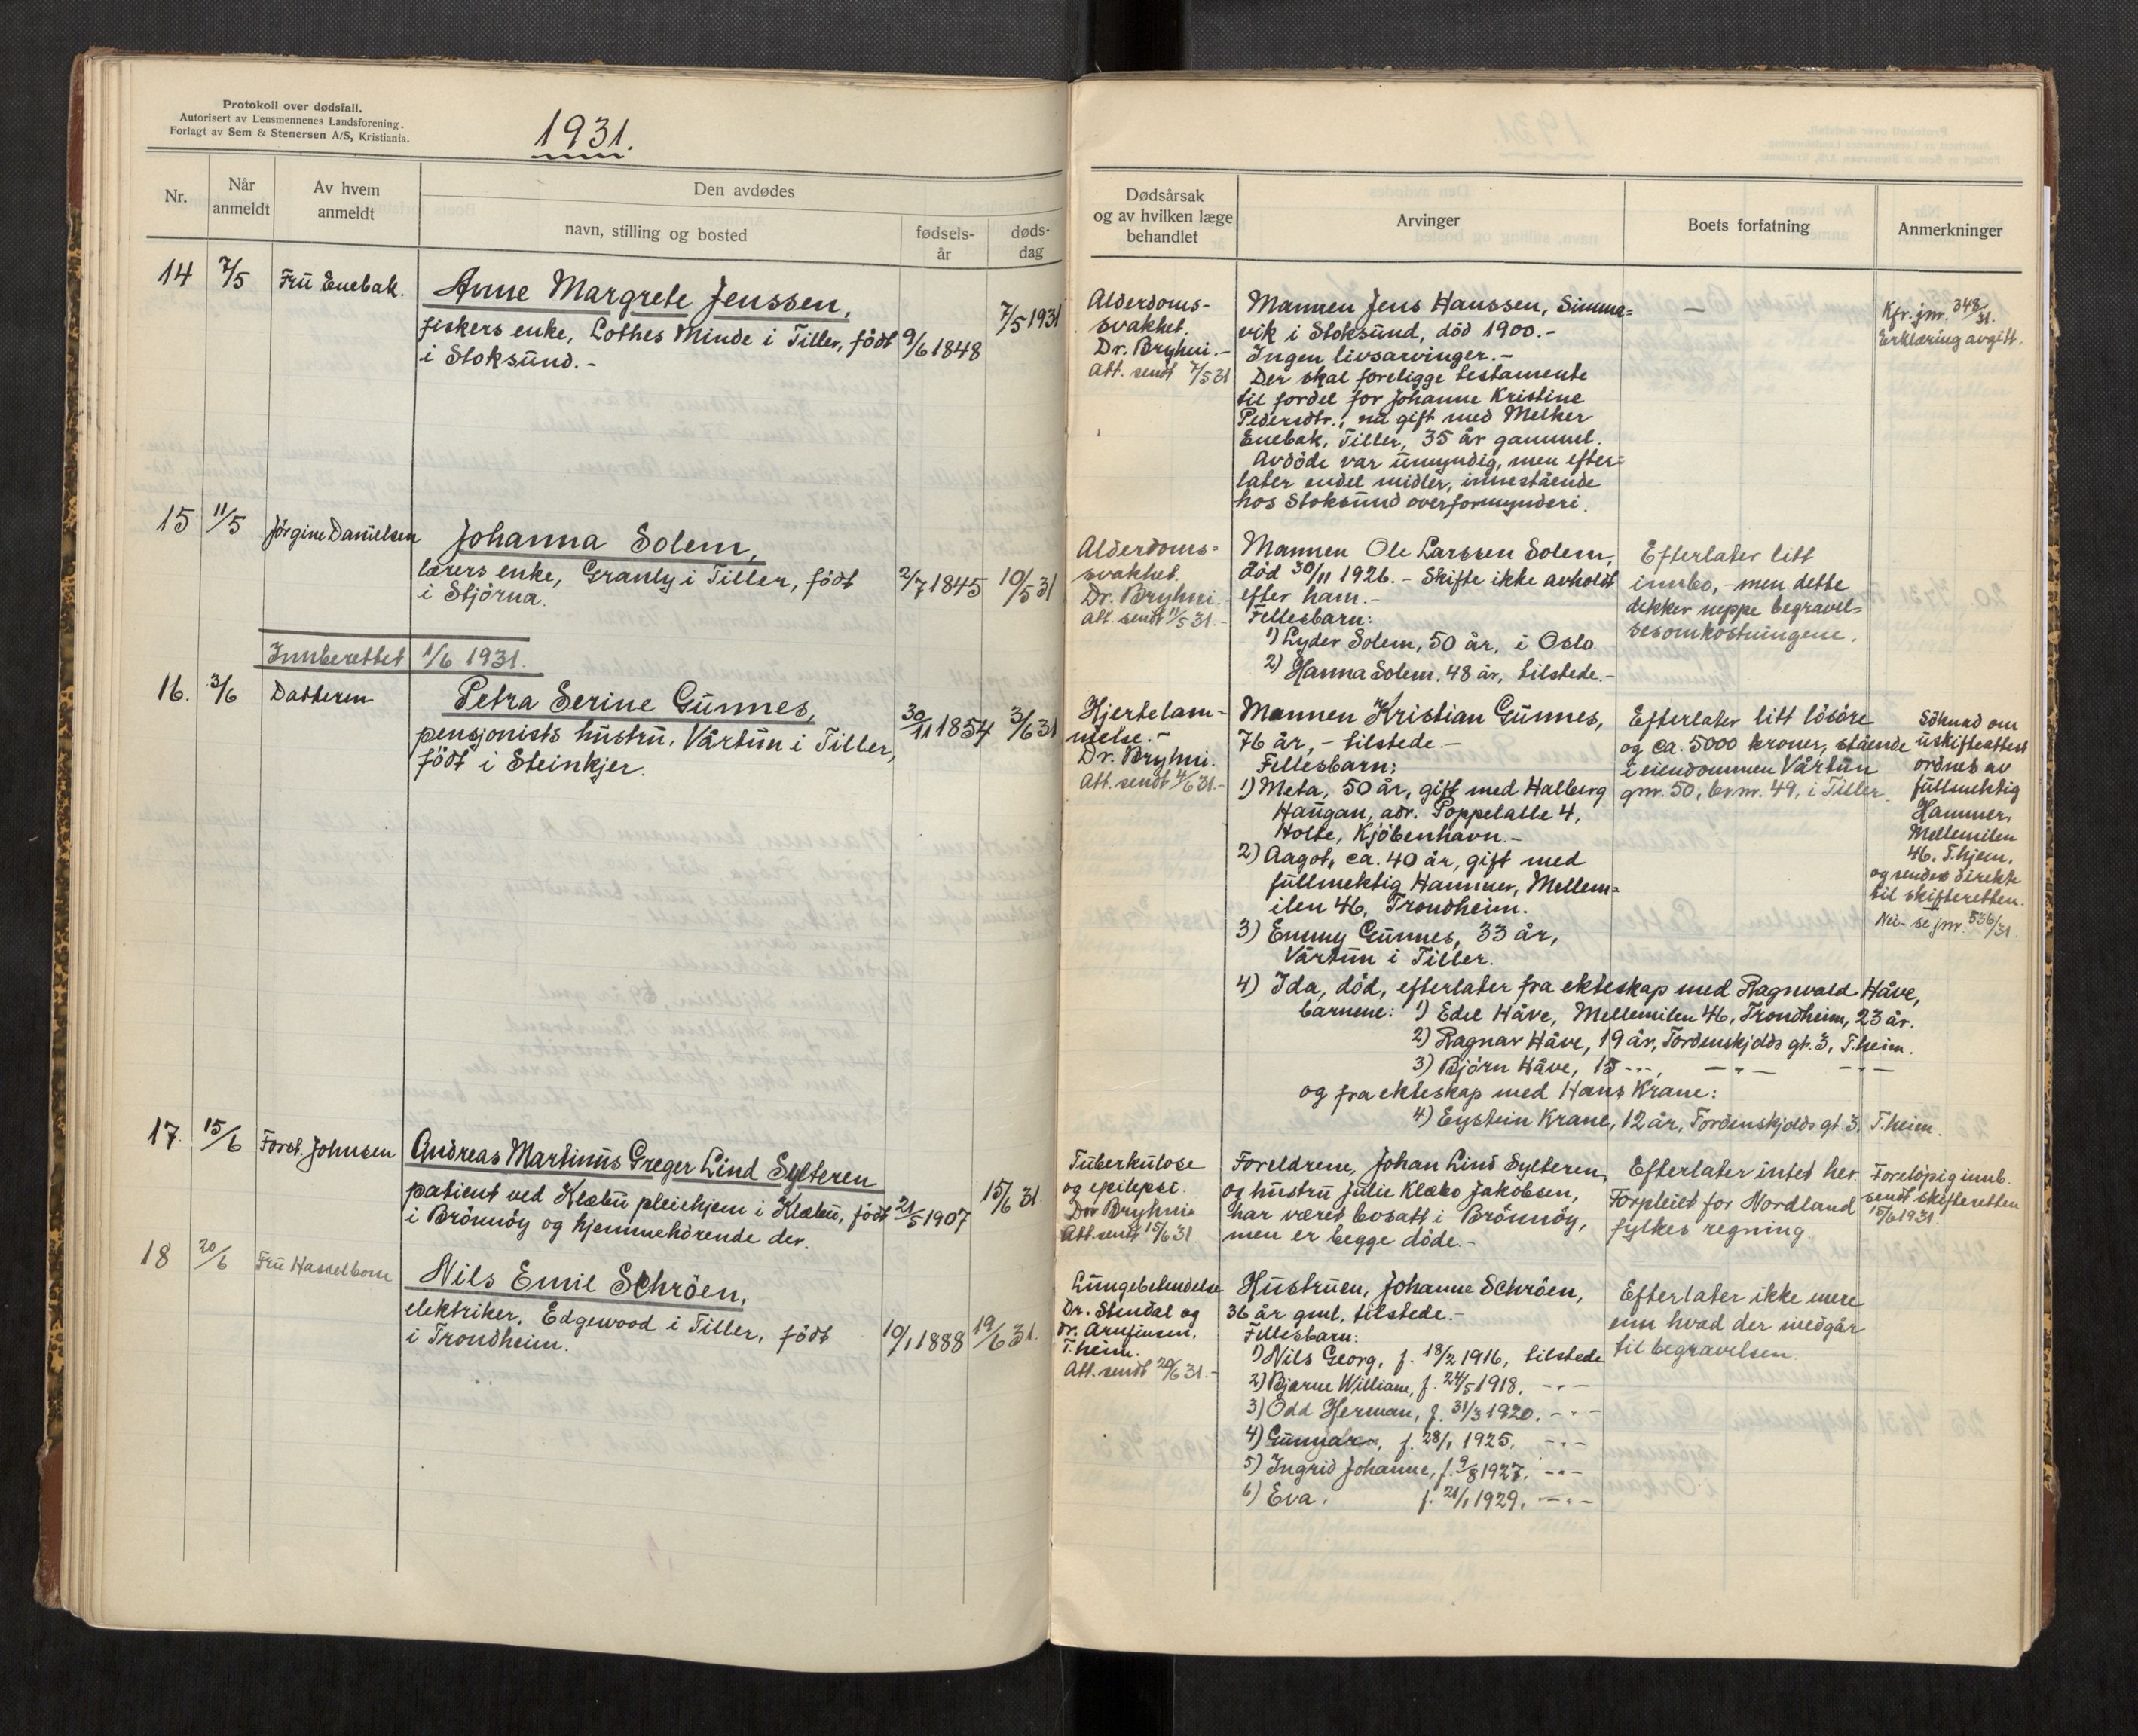 Protokoll over dødsfall.
Autorisert av Lensmennenes Landsforening.
Forlagt av Sem & Stenersen A/S, Kristiania.
1931.
Nr.
Når anmeldt
Av hvem anmeldt
Den avdødes
navn, stilling og bosted
fødsels-år
døds-dag
Dødsårsak og av hvilken læge behandlet
Arvinger
Boets forfatning
Anmerkninger
14 7/5 Fru Enebak.
Anne Margrete Jenssen,
fiskers enke, Lothes Minde i Tiller, födt 9/6 1848
i Stoksund.-
7/5 1931
Alderdoms-
svakhet.
Dr. Bryhni.-
Att. sendt 7/5 31
Mannen Jens Hanssen, Simma=
vik i Stoksund, död 1900.-
Ingen livsarvinger.-
Der skal foreligge testamente
til fordel for Johanne Kristine
Pedersdtr., nu gift med Melker
Enebak, Tiller, 35 år gammel.
Avdöde var umyndig, men efter=
later endel midler, innestående
hos Stoksund overformynderi.
—
Kfr. jnr. 348/31.
Erklæring avgitt.
15 11/5 Jörgine Danielsen
Johanna Solem,
lærers enke, Granly i Tiller, födt 2/7 1845 10/5 31
i Stjörna.
Alderdoms=
svakhet.
Dr. Bryhni.-
Att. sendt 11/5 31.-
Mannen Ole Larssen Solem,
död 30/11 1926.- Skifte ikke avholdt
efter ham.-
Fellesbarn:
1) Lyder Solem, 50 år, i Oslo.
2) Hanna Solem. 48 år, tilstede.-
Efterlater litt
innbo,- men dette
dekker neppe begravel=
sesomkostningene.
Innberettet 1/6 1931.
16. 3/6 Datteren
Petra Serine Gunnes,
pensjonists hustru, Vårtun i Tiller,
födt i Steinkjer.
30/11 1854 3/6 31
Hjertelam-
melse.-
Dr. Bryhni.
Att. sendt 4/6 31.-
Mannen Kristian Gunnes,
76 år,- tilstede.-
Fellesbarn:
1) Meta, 50 år, gift med Halberg
Haugan, adr. Poppelalle 4,
Holte, Kjöbenhavn.-
2) Aagot, ca. 40 år, gift med
fullmektig Hammer, Mellem=
ilen 46, Trondheim.
3) Emmy Gunnes, 33 år,
Vårtun i Tiller.
4) Ida, död, efterlater fra ekteskap med Ragnvald Håve,
barnene: 1) Edel Håve, Mellemilen 46, Trondheim, 23 år.
2) Ragnar Håve, 19 år, Tordenskjolds gt. 3, T.heim.
3) Björn Håve, 15 -"-, —"— —"—
og fra ekteskap med Hans Krane:
4) Eystein Krane, 12 år, Tordenskjolds gt. 3, T.heim.
Efterlater litt lösöre
og ca. 5000 kroner, stående
i eiendommen Vårtun
gnr. 50, brnr. 49, i Tiller.
Söknad om
uskifteattest
ordnes av
fullmektig
Hammer,
Mellemilen
46, T.hjem,
og sendes direkte
til skifteretten.
Nei- se jnr. 536/31.
17. 15/6 Forst. Johnsen
Andreas Martinus Greger Lind Sylteren
patient ved Klæbu pleiehjem i Klæbu, födt 21/5 1907
i Brönnöy og hjemmehörende der.
15/6 31.
Tuberkulose
og epilepsi.
Dr. Bryhni
Att. sendt 15/6 31.
Foreldrene, Johan Lind Sylteren,
og hustru Julie Klæbo Jakobsen,
har været bosatt i Brönnöy,
men er begge döde.-
Efterlater intet her.
Forpleiet for Nordland
fylkes regning.
Forelöpig innb.
sendt skifteretten
15/6 1931.
18 20/6 Fru Hasselbom
Nils Emil Schröen,
elektriker, Edgewood i Tiller, födt
i Trondheim.
10/1 1888 19/6 31.
Lungebetendelse
Dr. Stendal og
dr. Arnfinsen,
T.heim.
Att. sendt 20/6 31.-
Hustruen, Johanne Schröen,
36 år gml., tilstede.-
Fellesbarn:
1) Nils Georg, f. 18/2 1916, tilstede
2) Bjarne William, f. 24/5 1918, -"-
3) Odd Herman, f. 31/3 1920. -"-
4) Gunnar, f. 28/1 1925, -"-
5) Ingrid Johanne, f. 9/8 1927, -"-
6) Eva, f. 21/1 1929, -"-
Efterlater ikke mere
enn hvad der medgår
til begravelsen.